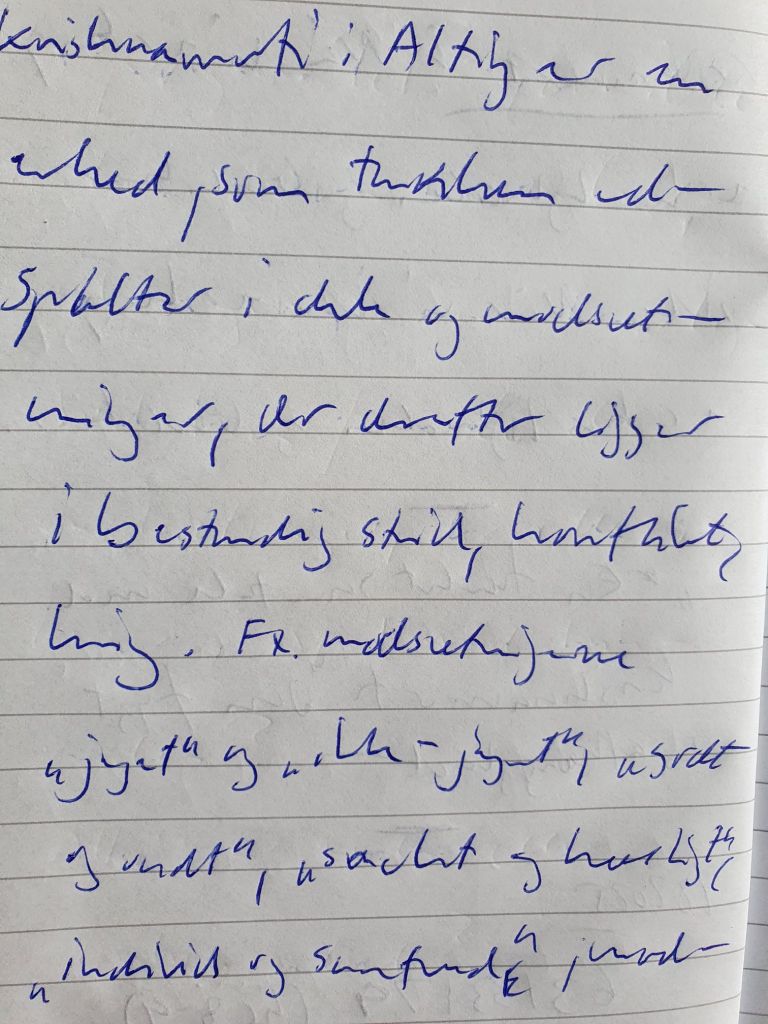 Krishnamurti: Alting er en
enhed, som tænkningen ud-
spalter i dele og modsæt-
ninger, der derefter ligger
i bestandig strid, konflikt,
krig. Fx. modsætningerne
"jeget" og "ikke-jeget", "godt
og ondt", "smukt og hæsligt",
"individ og samfund",